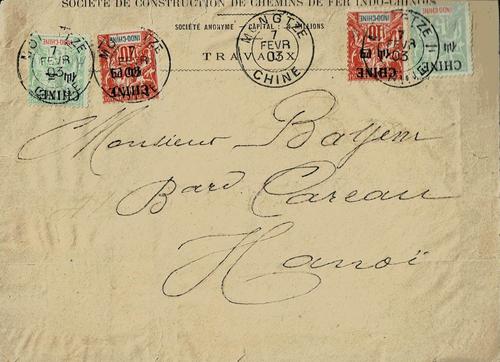 SOCIÉTÉ DE CONSTRUCTION DE CHEMINS DE FER INDO-CHINOIS
SOCIÉTÉ ANONYME CAPITAL : MILLIONS
TRAVAUX
MONGTZE
7
FEVR
03
CHINE
MONGTZE
FEVR
03
CHINE
INDO-CHINE
CHINE
MONGTZE
10
CHINE
INDO-CHINE
10
CHINE
7
03
CHINE
INDO-CHINE
Monsieur Bayem
Bard Careau
Hanoï